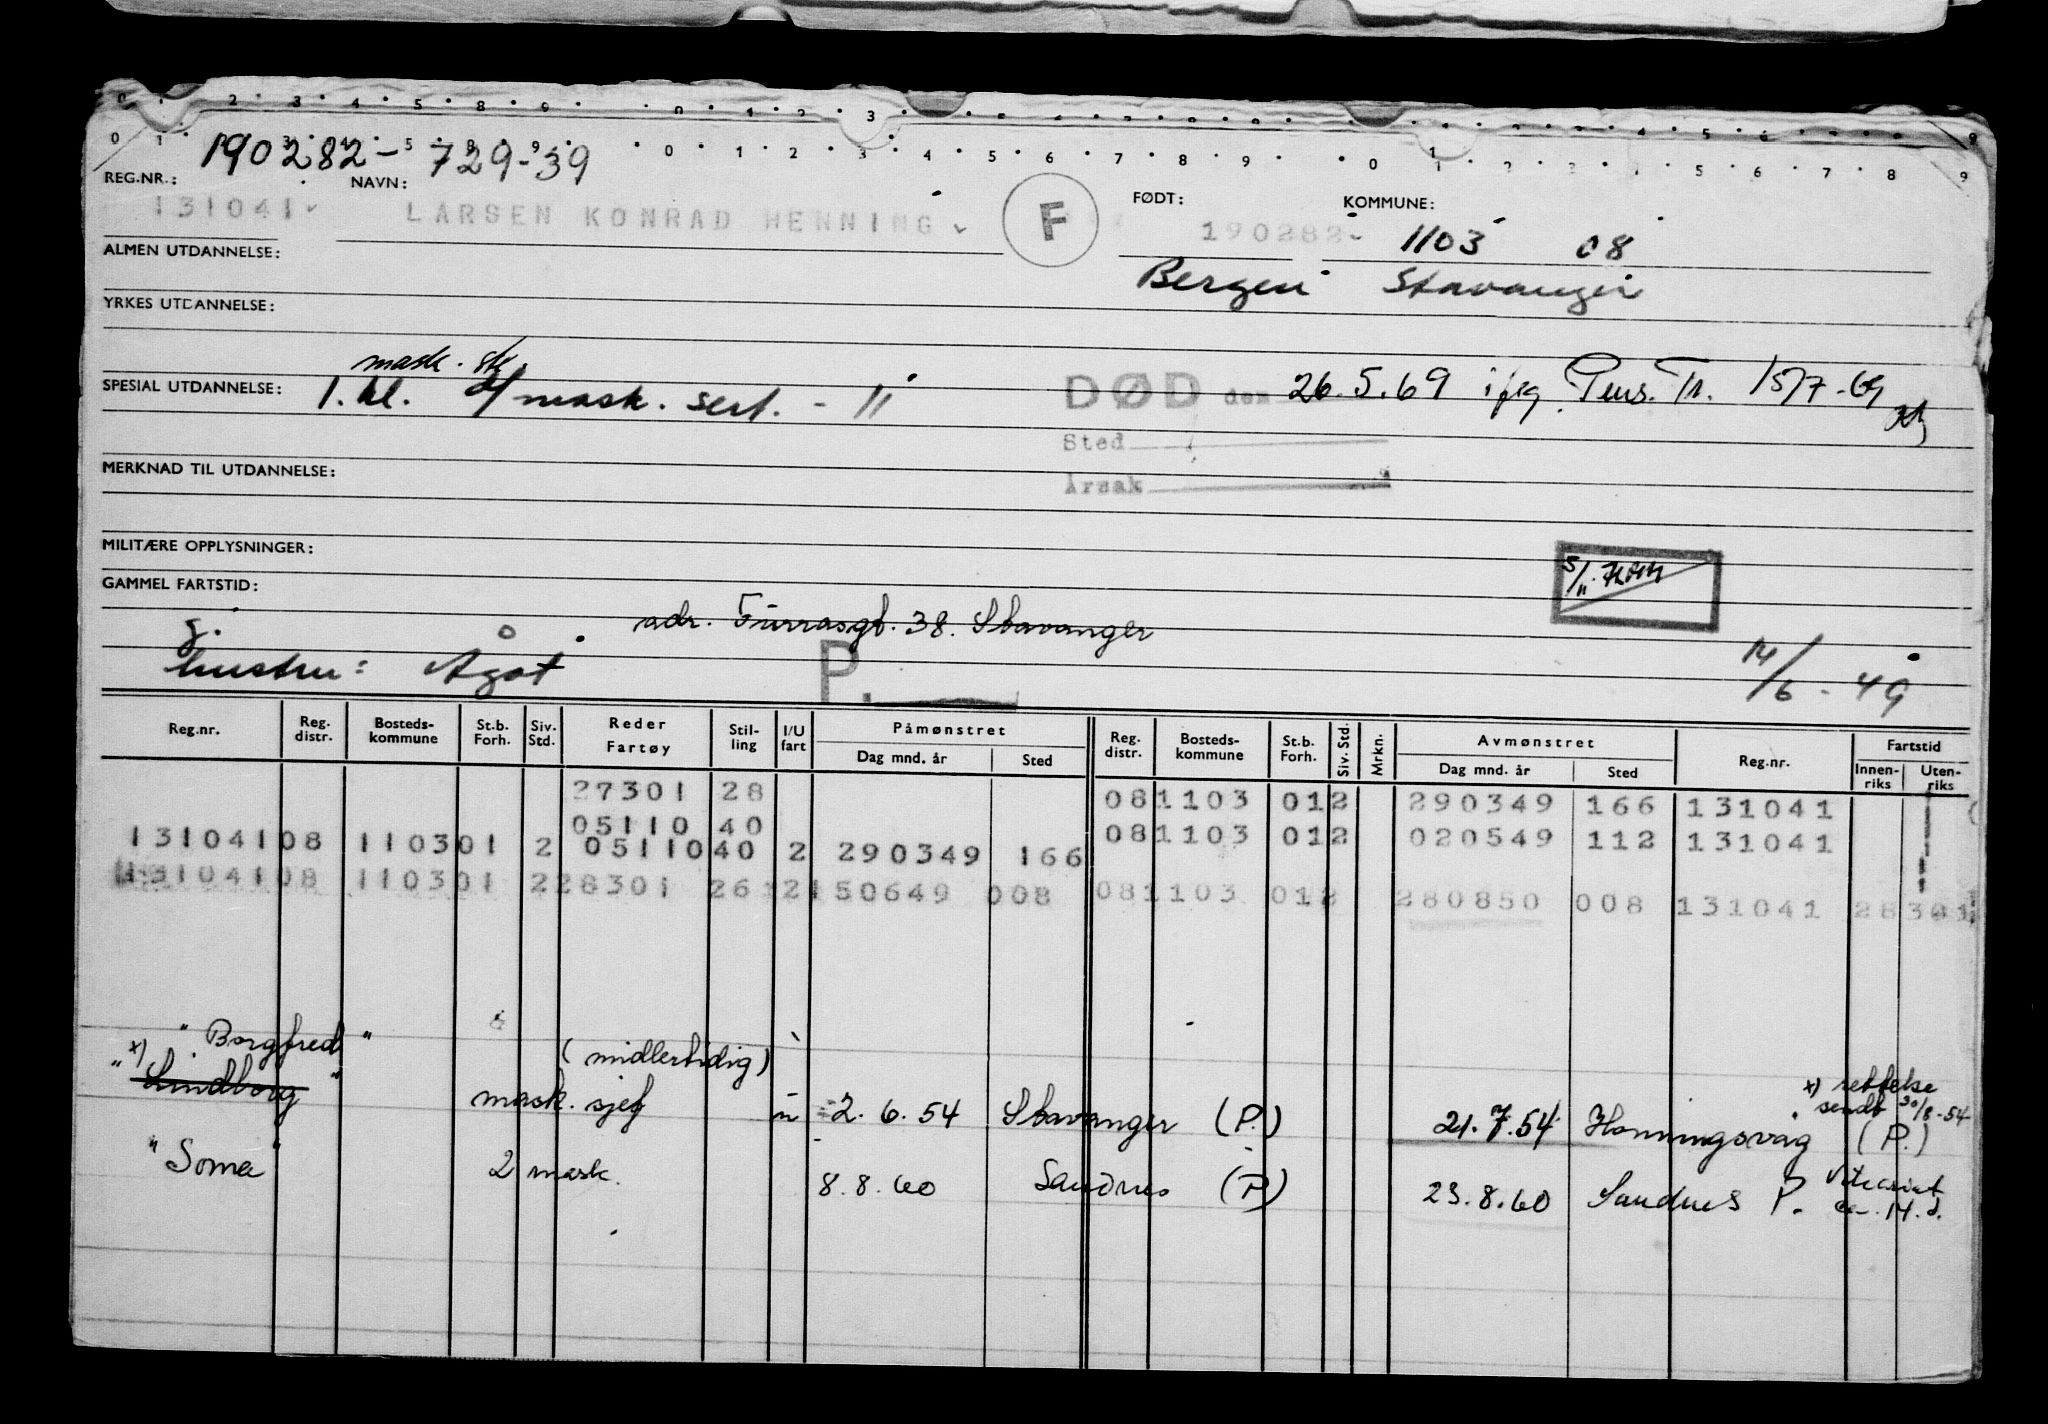 190282-729-39
REG.NR.: NAVN: FØDT: KOMMUNE:
131041 LARSEN KONRAD HENNING F 190282 1103 08
ALMEN UTDANNELSE: Bergen Stavanger
YRKES UTDANNELSE:
mask. sk
SPESIAL UTDANNELSE: 1. kl. mask. sert. - 11 DØD den 26.5.69 iflg. Pens. Tr. 15/7-69
Sted
Årsak
MERKNAD TIL UTDANNELSE:
MILITÆRE OPPLYSNINGER: 5/11
GAMMEL FARTSTID:
g. adr. Furrasgt. 38. Stavanger
hustru: Ågot P. 14/6-49
Reg.nr. Reg. distr. Bosteds-kommune St.b. Forh. Siv. Std. Reder Fartøy Stil-ling I/U fart Påmønstret Dag mnd. år Sted Reg. distr. Bosteds-kommune St.b. Forh. Siv. Std. Mrkn. Avmønstret Dag mnd. år Sted Reg.nr. Fartstid Innen-riks Uten-riks
27301 28 08 1103 01 2 290349 166 131041
05110 40 08 1103 01 2 020549 112 131041
131041 08 1103 01 2 05110 40 2 290349 166
131041 08 1103 01 2 28301 26 2 150649 008 08 1103 01 2 280850 008 131041 28301
" Borgfred " (midlertidig)
" x) Lindborg " mask. sjef u 2.6.54 Stavanger (P.) 21.7.54 Honningsvåg (P.) x) rettelse sendt 30/8-54
" Soma " 2 mask. 8.8.60 Sandnes (P) 23.8.60 Sandnes P. Vikariat 14 d.